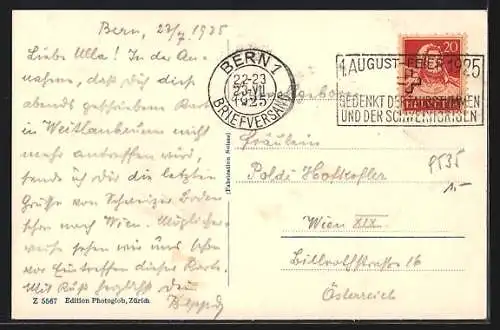 Bern, 23/VII 1925
Liebe Ulla! In der An-
nahme, daß dich die
abends geschriebene Karte
in Weitlanbrunn nicht
mehr antreffen wird,
sende ich dir die letzten
Grüße von Schweizer Boden
schon nach Wien. Möglicher-
weise sehen wir uns schon
vor Eintreffen dieser Karte.
Mit Kuß herzlichst dein
Z 5567 Edition Photoglob, Zürich.
(Fabrication Suisse)
BERN 1
22-23
23.VII
1925
BRIEFVERSAND
1. AUGUST-FEIER 1925
GEDENKT DER
UND DER SCHWERHÖRIGEN
20
HELVETIA
Fräulein
Poldi
Wien XIX
Billrothstrasse 16
Österreich
P535
1.-